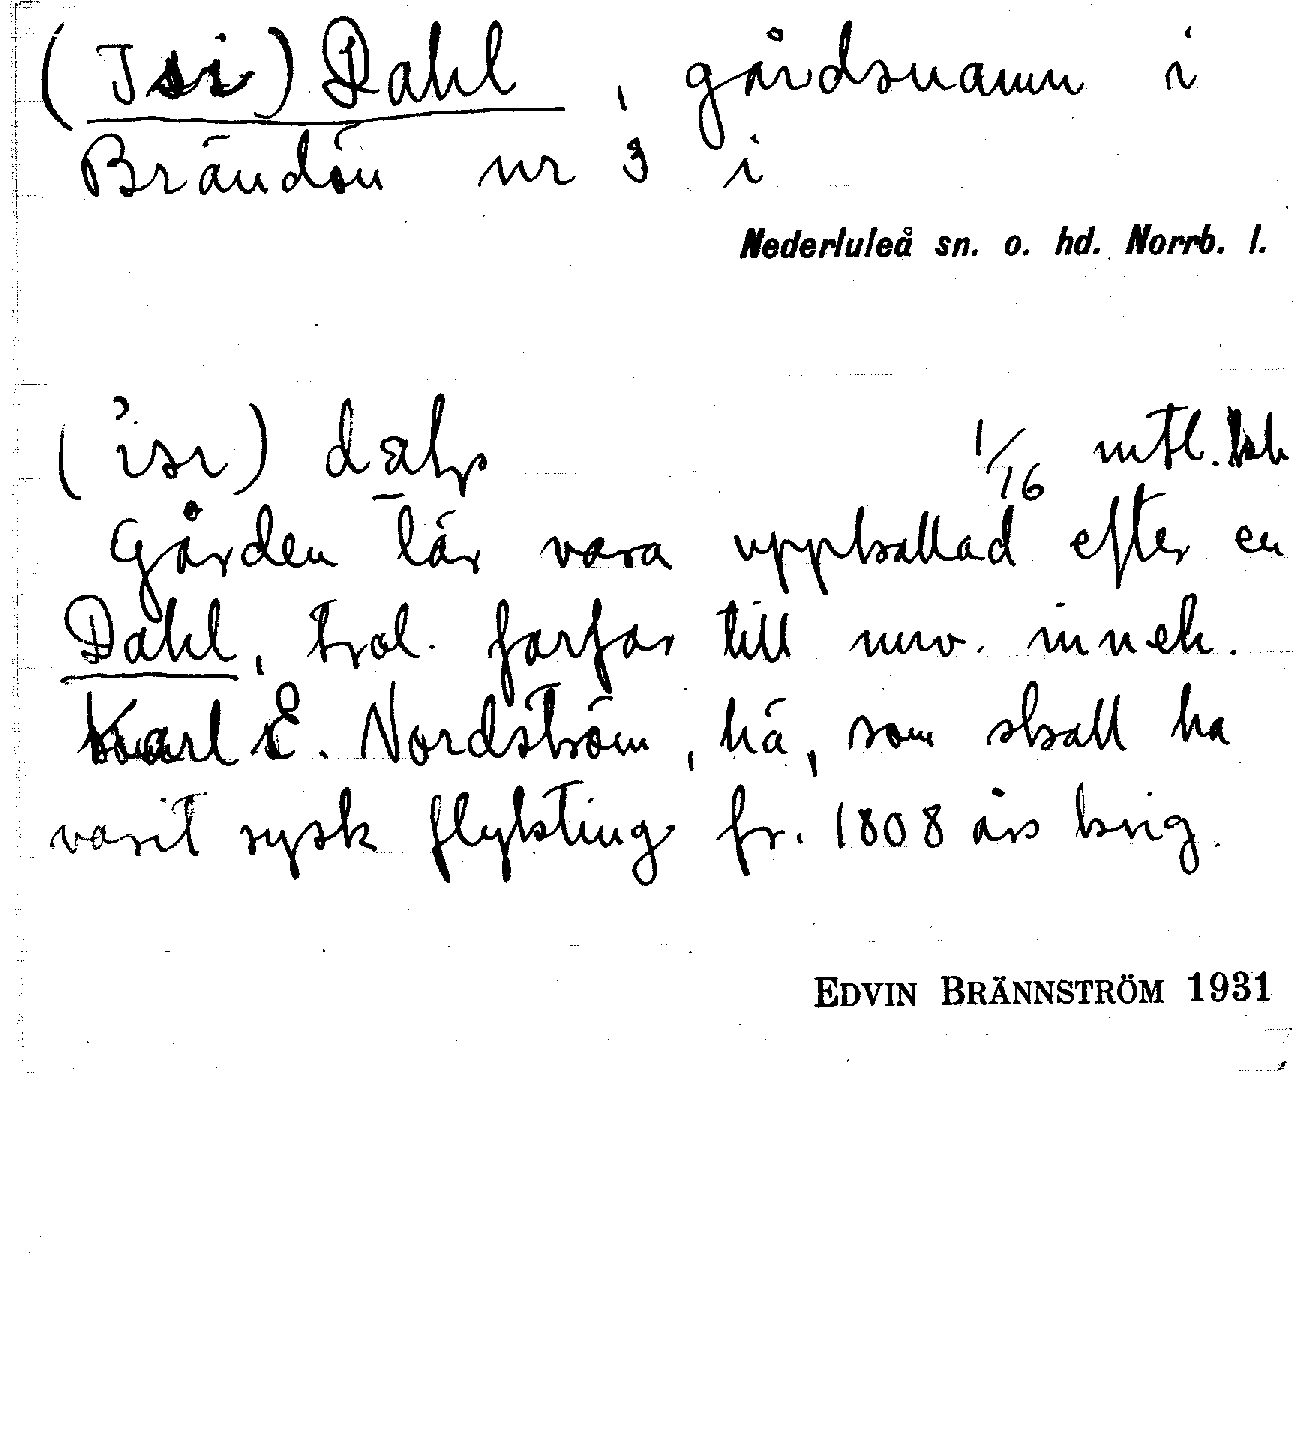 (Isi) Dahl, gårdsnamn i
Brändön nr 3 i
Nederluleå sn. o. hd. Norrb. l.
1/16 mtl.
Gården lär vara uppkallad efter en
Dahl, trol. farfar till nuv. inneh.
Karl E. Nordström, hä, som skall ha
varit rysk flykting fr. 1808 års krig.
EDVIN BRÄNNSTRÖM 1931